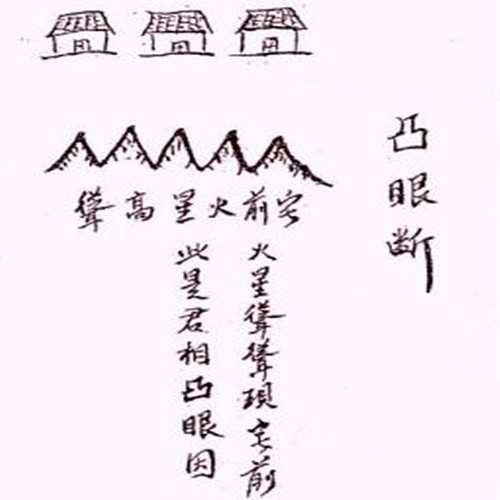 凸眼斷
宅前火星高聳
火星聳聳現宅前
此是君相凸眼因